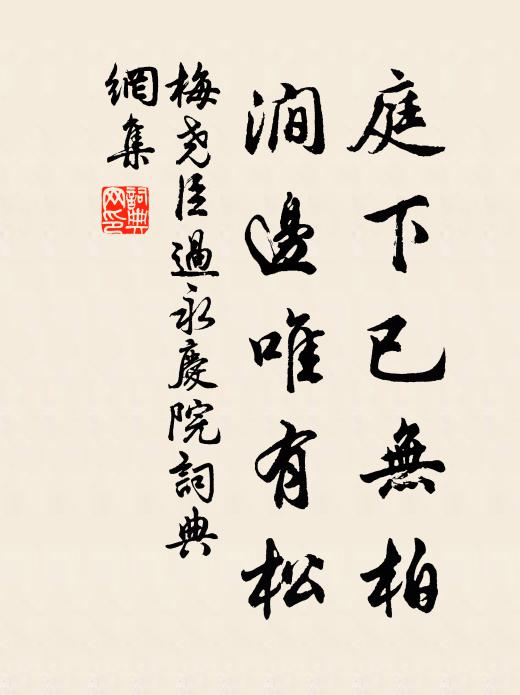 庭下已無柏
澗邊唯有松
梅堯臣過永慶院詞典
網集
詞典網印